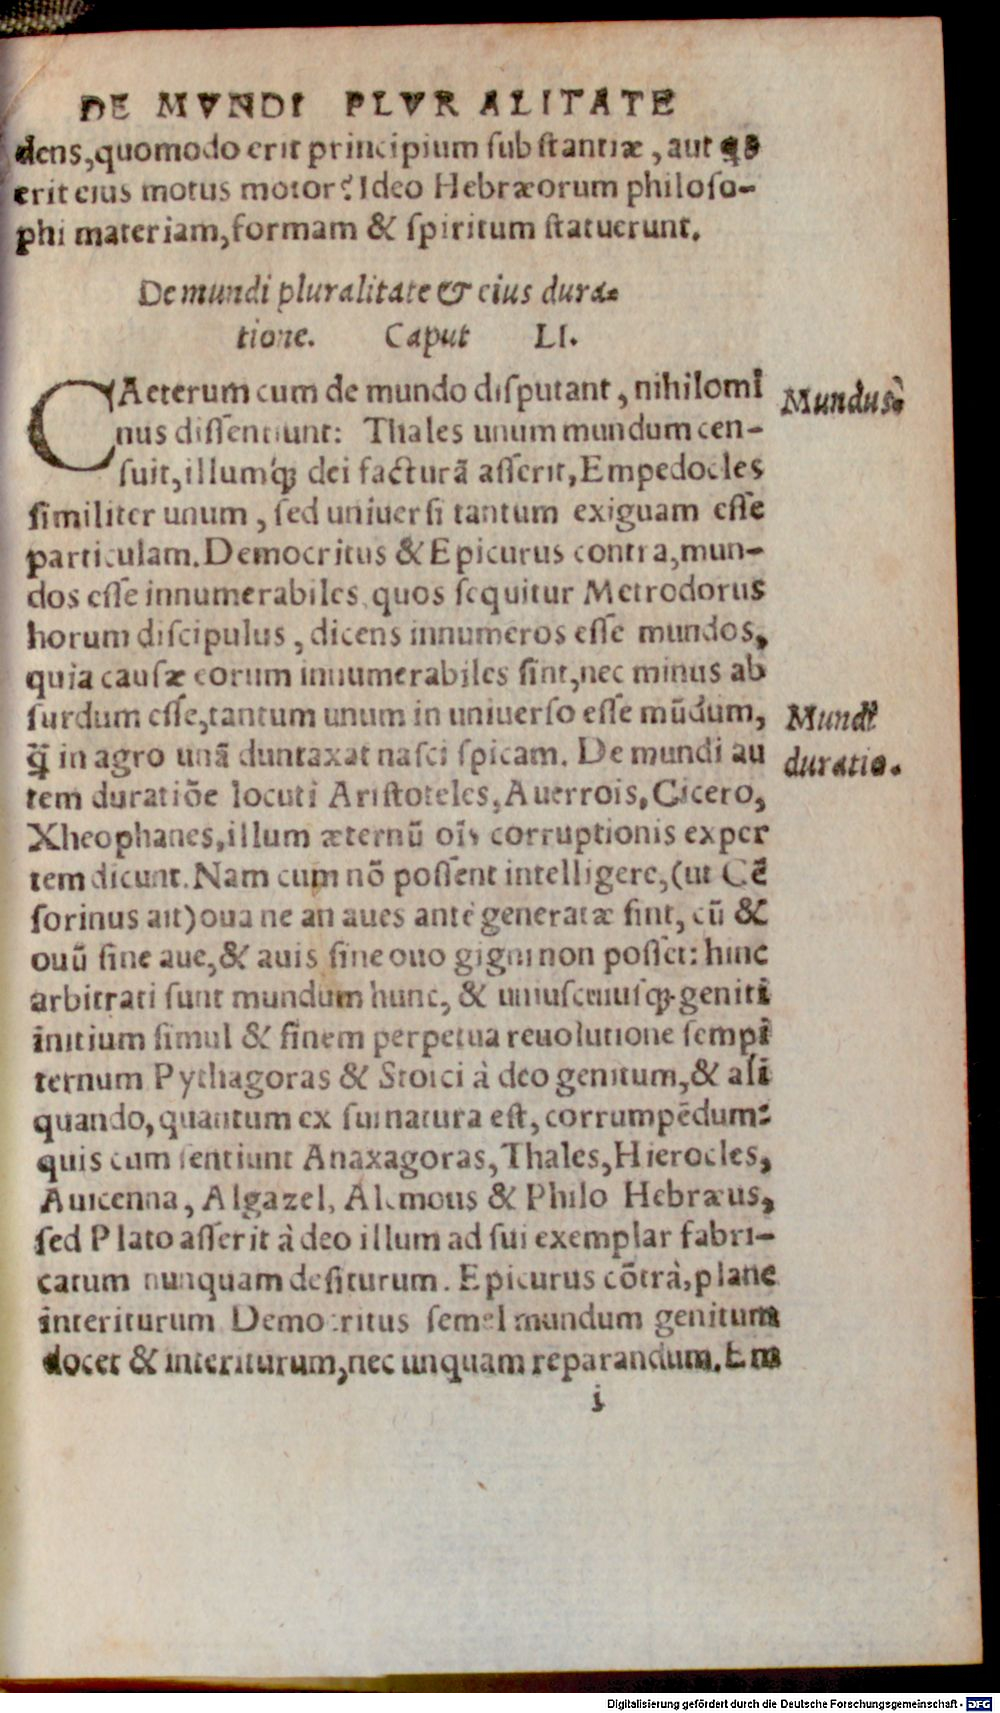 DE MVNDI PLVRALITATE
dens,quomodo erit principium ſubſtantiæ, aut
erit eius motus motor? Ideo Hebræorum philoſo-
phi materiam,formam & ſpiritum ſtatuerunt.
De mundi pluralitate & eius dura-
tione. Caput LI.
CAeterum cum de mundo diſputant, nihilomi
nus diſſentiunt: Thales unum mundum cen-
ſuit,illumq́ꝫ dei facturā aſſerit,Empedocles
ſimiliter unum, ſed uniuerſi tantum exiguam eſſe
particulam.Democritus & Epicurus contra,mun-
dos eſſe innumerabiles, quos ſequitur Metrodorus
horum diſcipulus, dicens innumeros eſſe mundos,
quia cauſæ eorum innumerabiles ſint,nec minus ab
ſurdum eſſe,tantum unum in uniuerſo eſſe mūdum,
q̄ in agro unā duntaxat naſci ſpicam. De mundi au
tem duratiōe locuti Ariſtoteles,Auerrois,Cicero,
Xheophanes,illum æternū oīs corruptionis exper
tem dicunt.Nam cum nō poſſent intelligere,(ut Cē
ſorinus ait)oua ne an aues ante generatæ ſint, cū &
ouū ſine aue,& auis ſine ouo gigni non poſſet: hinc
arbitrati ſunt mundum hunc, & uniuſcuiuſqꝫ geniti
initium ſimul & finem perpetua reuolutione ſempi
ternum Pythagoras & Stoici à deo genitum,& ali
quando,quantum ex ſui natura eſt, corrumpēdum:
quis cum ſentiunt Anaxagoras,Thales,Hierocles,
Auicenna, Algazel, Alcmous & Philo Hebræus,
ſed Plato aſſerit à deo illum ad ſui exemplar fabri-
catum nunquam deſiturum. Epicurus cōtrà,plane
interiturum Democritus ſemel mundum genitum
docet & interiturum,nec unquam reparandum.Em
i
Mundus.
Mundi
duratio.
Digitalisierung gefördert durch die Deutsche Forschungsgemeinschaft - DFG